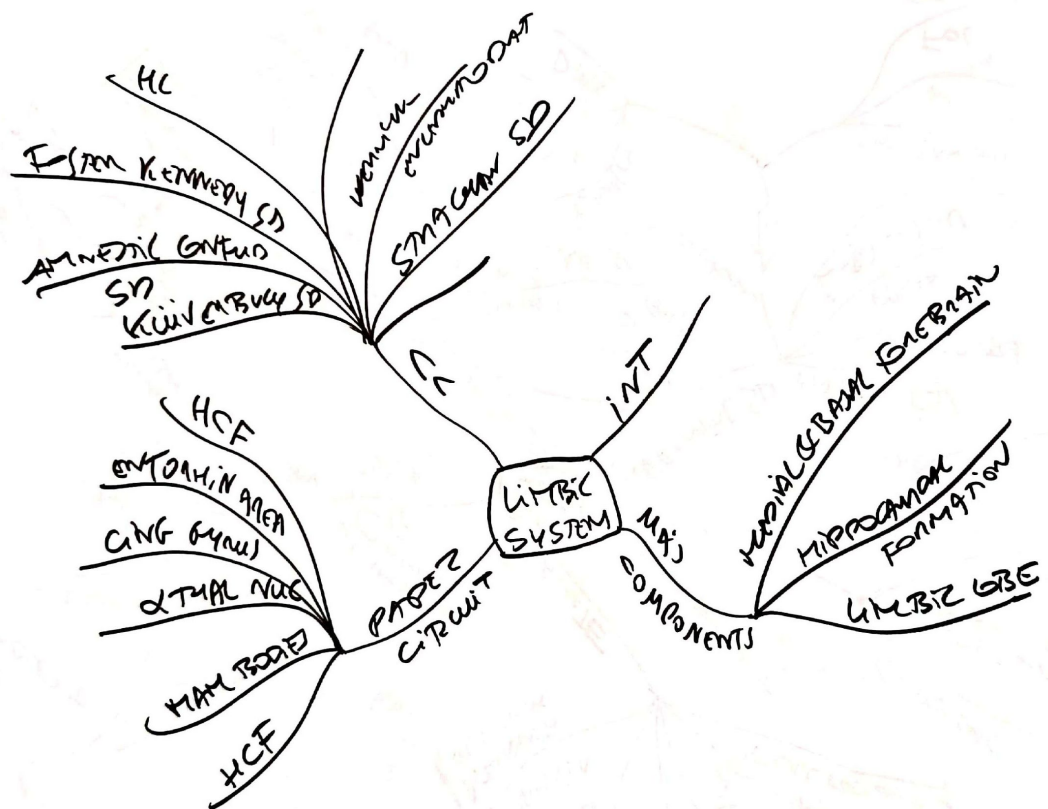 LIMBIC
SYSTEM
INT
MAJ
COMPONENTS
MEDIAL & BASAL FOREBRAIN
HIPPOCAMPAL
FORMATION
LIMBIC LOBE
PAPEZ
CIRCUIT
HCF
ENTORHIN AREA
CING GYRUS
α THAL NUC
MAM BODIES
HCF
CC
HC
FOSTER KENNEDY SD
AMNESTIC CONFUS
SD
KLUVER BUCY SD
STRACHAN SD